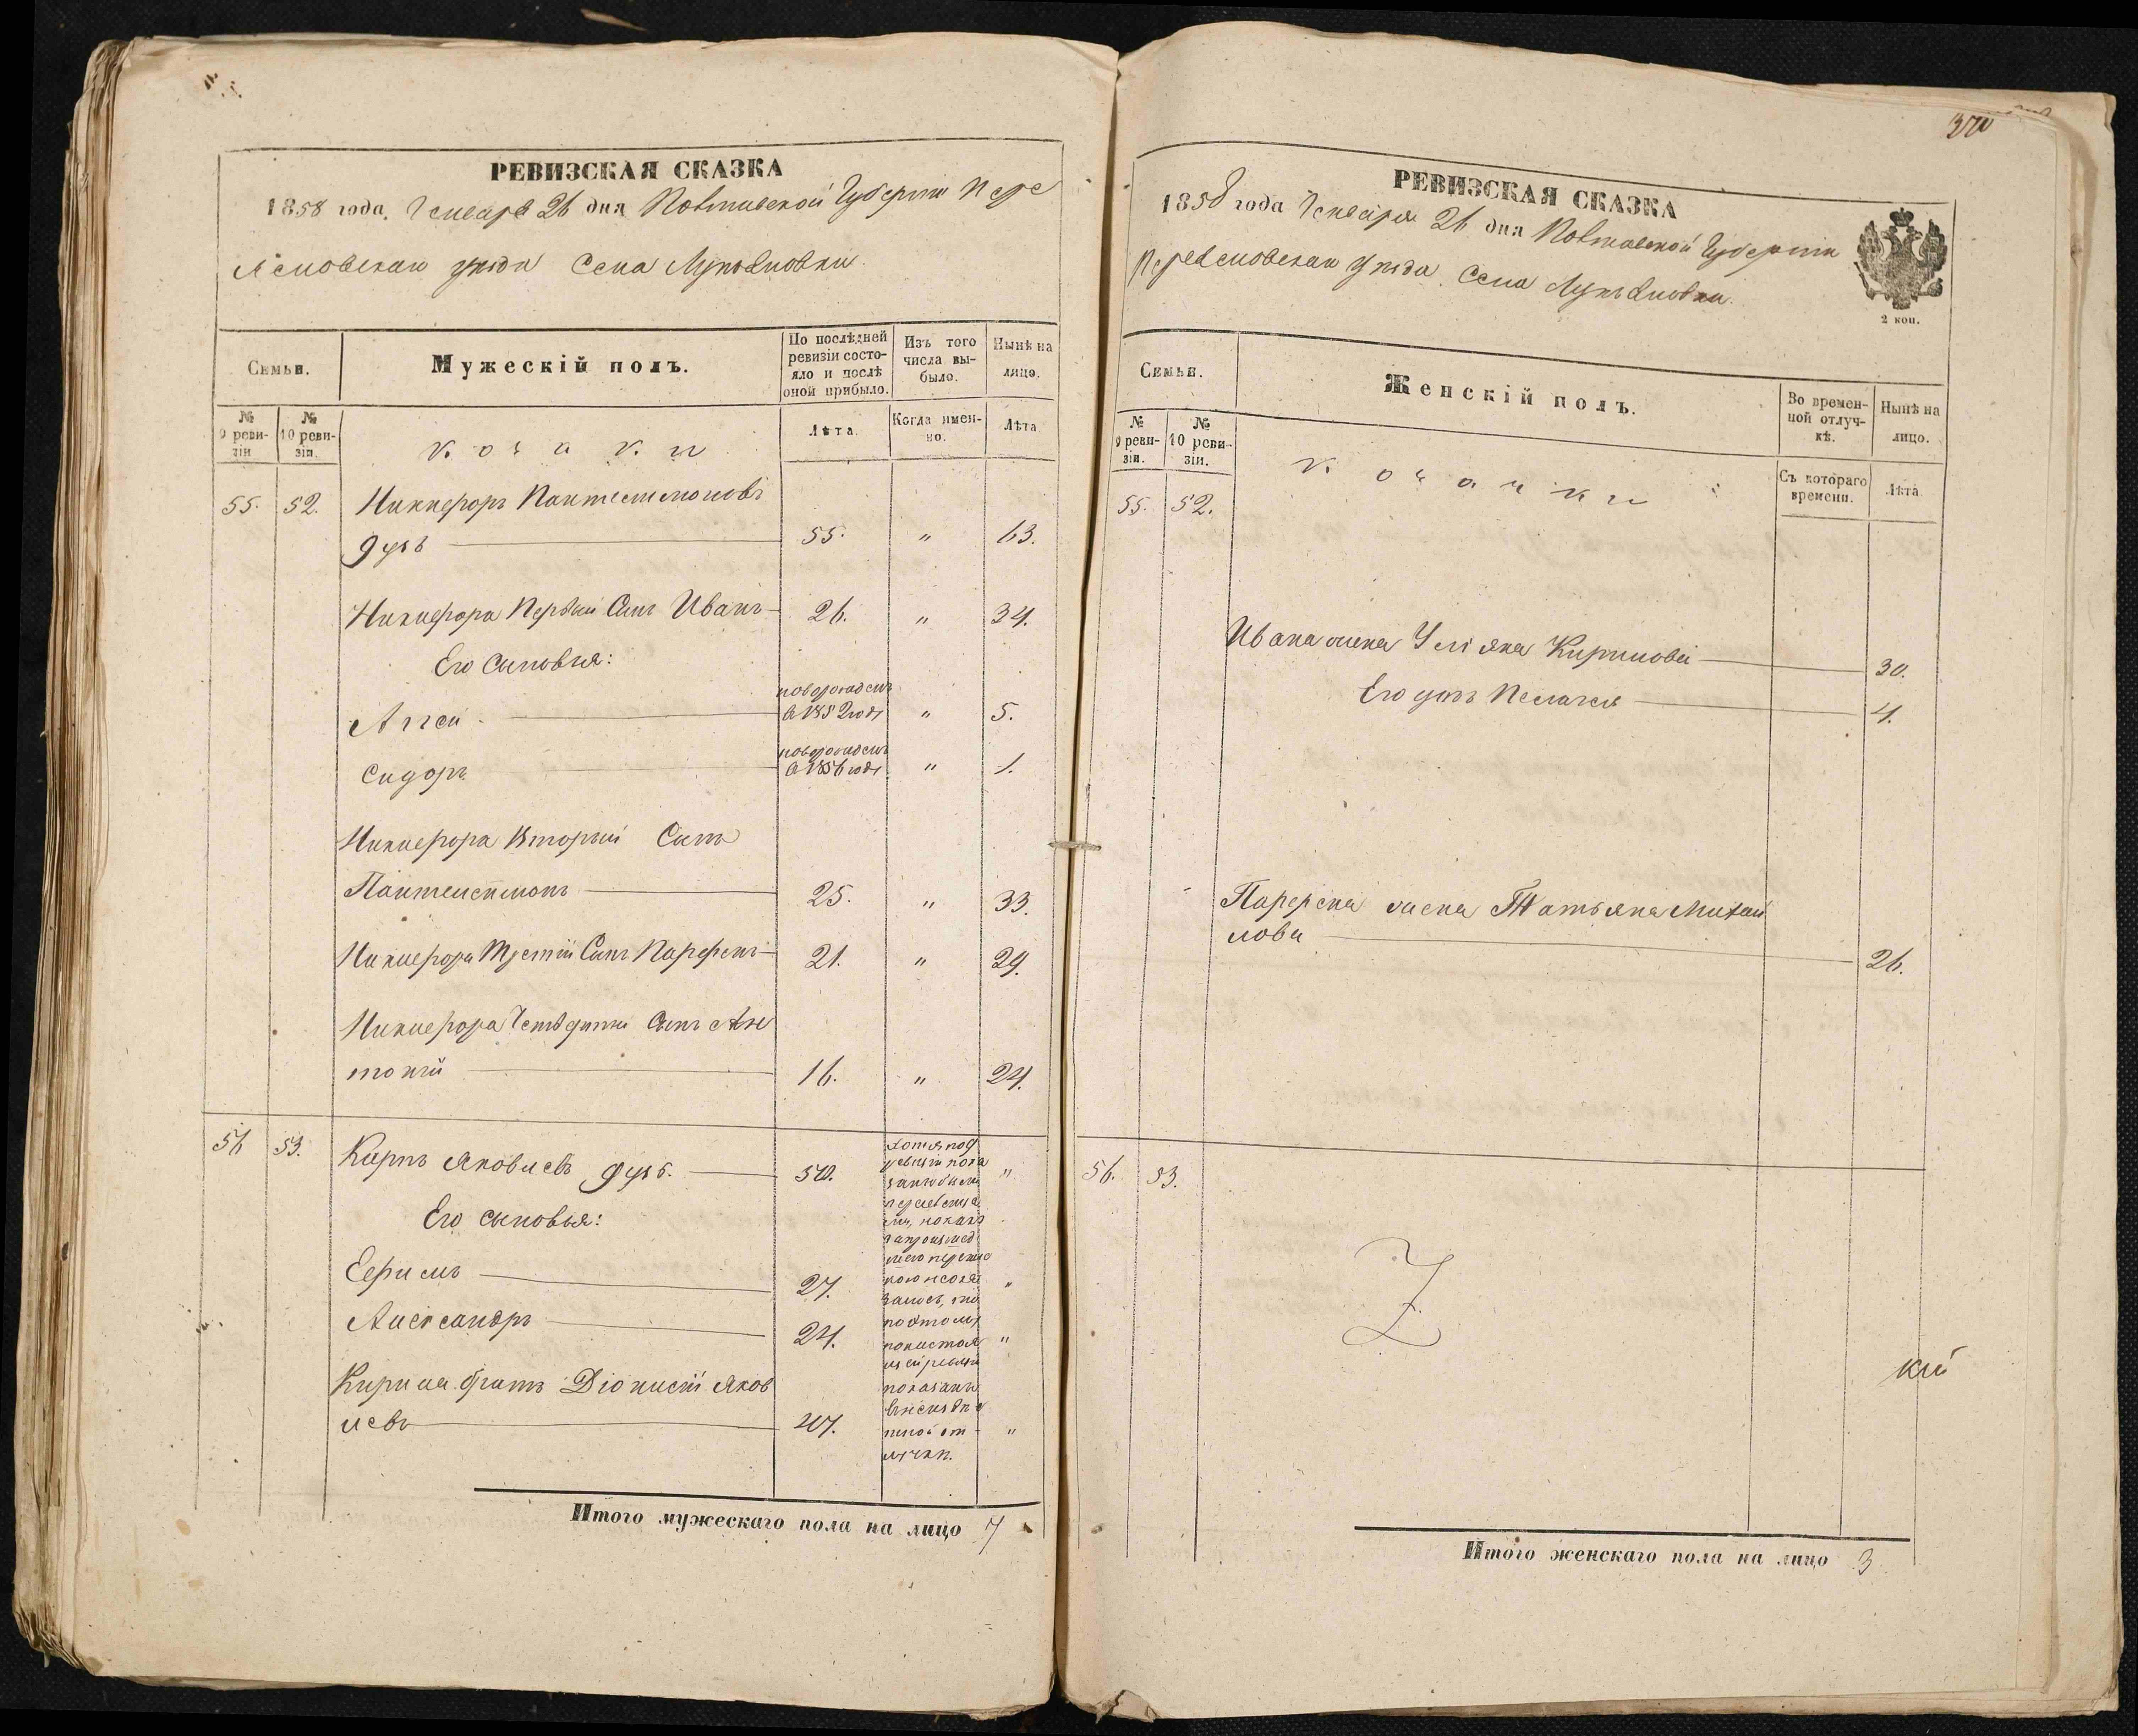 РЕВИЗСКАЯ СКАЗКА
1858 года, Генваря 26 дня Полтавской Губерніи Пере
яславскаго уѣзда Села Лукьяновки
Семьи.
Мужескій полъ.
По послѣдней ревизіи состояло и послѣ оной прибыло.
Изъ того числа выбыло.
Нынѣ на лицо.
№ 9 ревизіи
№ 10 ревизіи.
Козаки
Лѣта.
Когда именно.
Лѣта
55. 52. Никифоръ Пантелимоновъ
Дубъ 55. " 63.
Никифора Первый Сынъ Иванъ 26. " 34.
Его Сыновья:
Аггей новорожденъ в 1852 годѣ " 5.
Сидоръ новорожденъ в 1856 годѣ " 1.
Никифора Вторый Сынъ
Пантелеймонъ 25. " 33.
Никифора Третій Сынъ Парфенъ 21. " 29.
Никифора Четвертый Сынъ Ан
тоній 16. " 24.
56 53. Карпъ Яковлевъ Дубъ. 50. "
Его сыновья:
Ефимъ 27. "
Александръ 24. "
братъ Діонисій Яков
левъ 47. "
Итого мужескаго пола на лицо 7
370
РЕВИЗСКАЯ СКАЗКА
1858 года Генваря 26 дня Полтавской Губерніи
Переяславскаго уѣзда Села Лукьяновки.
2 коп.
Семьи.
Женскій полъ.
Во временной отлучкѣ.
Нынѣ на лицо.
№ 9 ревизіи.
№ 10 ревизіи.
Козачки
Съ котораго времени.
Лѣта
55. 52.
Ивана жена Уліяна Кирилова 30.
Его дочь Пелагея 4.
Парфена жена Татьяна Михай
лова 26.
56. 53.
кій
Итого женскаго пола на лицо 3